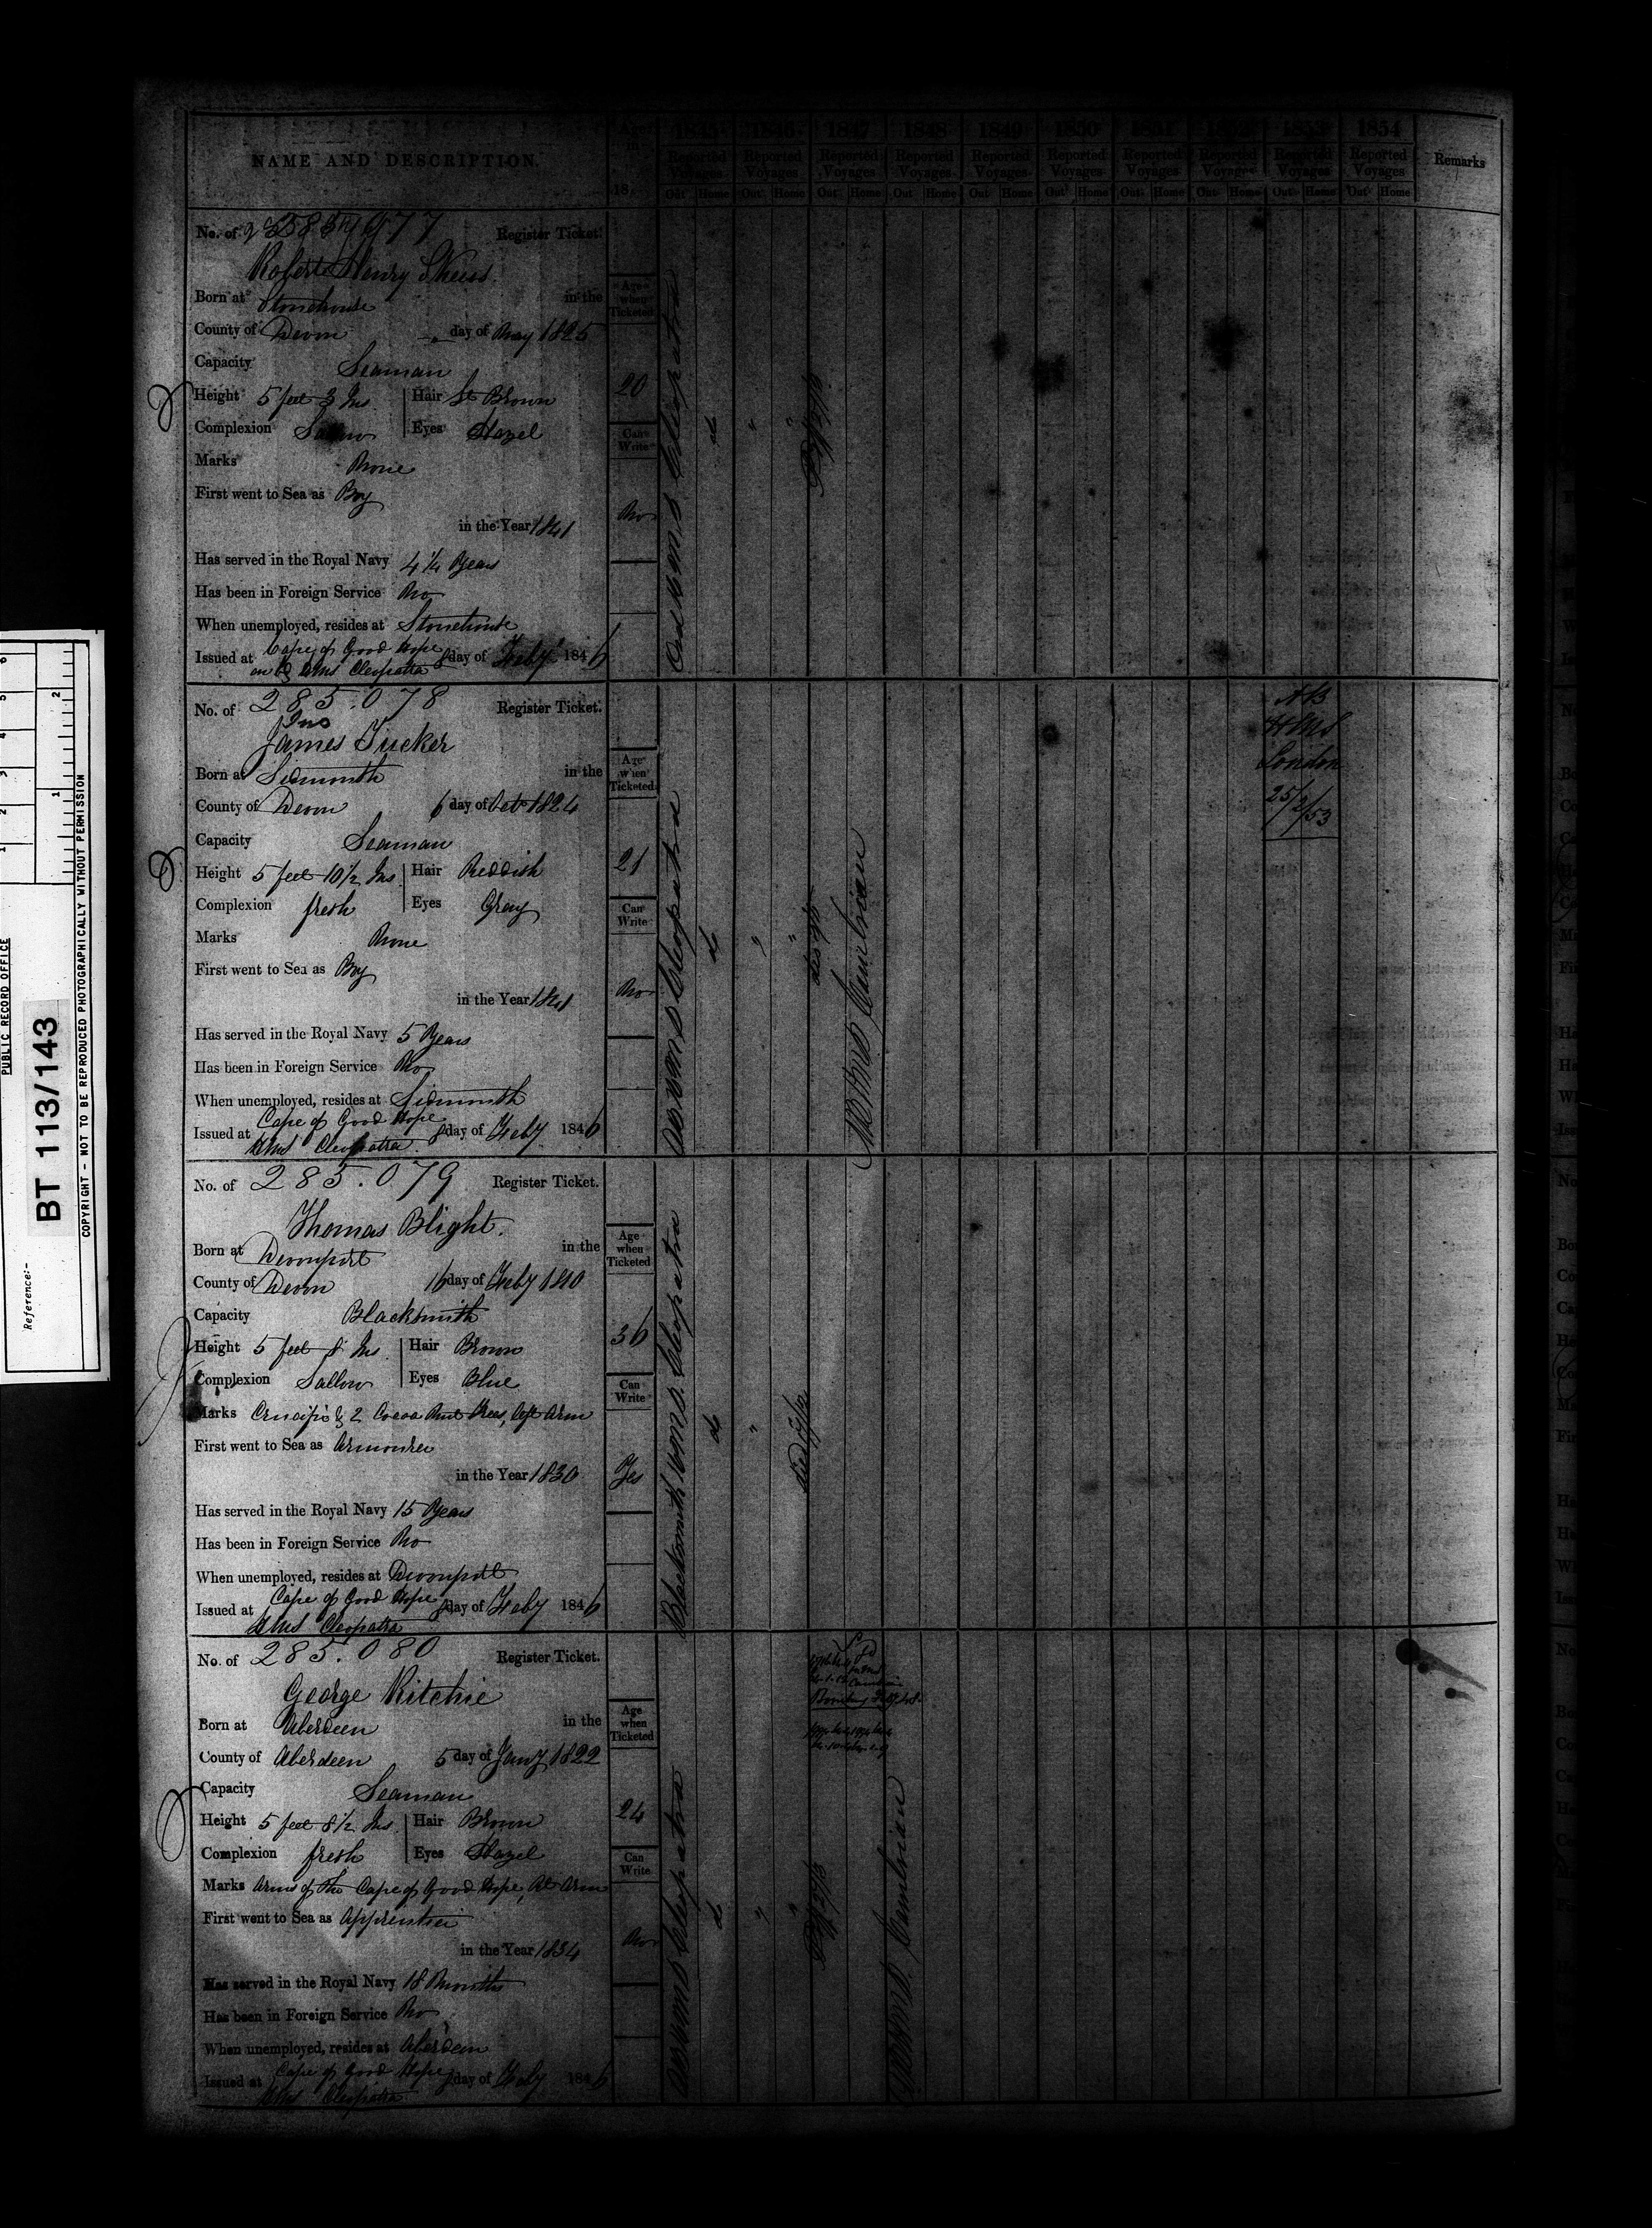 NAME AND DESCRIPTION.
Age in 18
1845 1846 1847 1848 1849 1850 1851 1852 1853 1854
Reported Voyages Reported Voyages Reported Voyages Reported Voyages Reported Voyages Reported Voyages Reported Voyages Reported Voyages Reported Voyages Reported Voyages Remarks
Out Home Out Home Out Home Out Home Out Home Out Home Out Home Out Home Out Home Out Home
No. of Register Ticket.
Robert Henry
Born at Stonehouse in the
County of Devon day of May 1825
Capacity Seaman
Height 5 feet 3 Ins Hair Lt Brown
Complexion Sallow Eyes Hazel
Marks None
First went to Sea as Boy
in the Year 1841
Has served in the Royal Navy 4 1/4 Years
Has been in Foreign Service No
When unemployed, resides at Stonehouse
Issued at Cape of Good Hope day of Feby 1846
on bd HMS Cleopatra
Age when Ticketed
20
Can Write
No
HMS Cleopatra
No. of 285.078 Register Ticket.
Jno
James Tucker
Born at Sidmouth in the
County of Devon 6 day of Octr 1824
Capacity Seaman
Height 5 feet 10 1/2 Ins Hair Reddish
Complexion fresh Eyes Gray
Marks None
First went to Sea as Boy
in the Year 1841
Has served in the Royal Navy 5 Years
Has been in Foreign Service No
When unemployed, resides at Sidmouth
Issued at Cape of Good Hope 8 day of Feby 1846
HMS Cleopatra
Age when Ticketed
21
Can Write
No
HMS Cleopatra
HMS Cambrian
AB
HMS
London
25/2/53
No. of 285.079 Register Ticket.
Thomas Blight.
Born at Devonport in the
County of Devon 16 day of Feby 1810
Capacity Blacksmith
Height 5 feet 8 Ins Hair Brown
Complexion Sallow Eyes Blue
Marks Crucifix & 2 Cocoa Nut Trees, left Arm
First went to Sea as Armourer
in the Year 1830
Has served in the Royal Navy 15 Years
Has been in Foreign Service No
When unemployed, resides at Devonport
Issued at Cape of Good Hope 8 day of Feby 1846
HMS Cleopatra
Age when Ticketed
36
Can Write
Yes
Blacksmith HMS Cleopatra
No. of 285.080 Register Ticket.
George Ritchie
Born at Aberdeen in the
County of Aberdeen 5 day of Jany 1822
Capacity Seaman
Height 5 feet 8 1/2 Ins Hair Brown
Complexion fresh Eyes Hazel
Marks Arms of the Cape of Good Hope, Rt Arm
First went to Sea as Apprentice
in the Year 1834
Has served in the Royal Navy 18 Months
Has been in Foreign Service No
When unemployed, resides at Aberdeen
Issued at Cape of Good Hope 8 day of Feby 1846
HMS Cleopatra
Age when Ticketed
24
Can Write
No
HMS Cleopatra
HMS Cambrian
PUBLIC RECORD OFFICE
Reference:-
BT 113/143
COPYRIGHT - NOT TO BE REPRODUCED PHOTOGRAPHICALLY WITHOUT PERMISSION